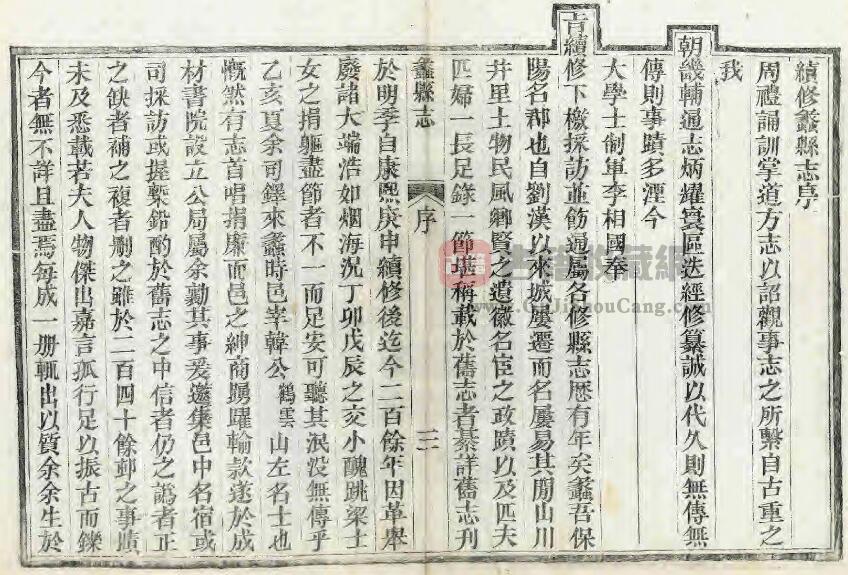 續修蠡縣志序
周禮誦訓掌道方志以詔觀事志之所繫自古重之
我
朝畿輔通志炳耀寰區迭經修纂誠以代久則無傳無
傳則事蹟多湮今
大學士制軍李相國奉
旨續修下檄採訪並飭通屬各修縣志歷有年矣蠡吾保
陽名郡也自劉漢以來城屢遷而名屢易其閒山川
井里土物民風鄉賢之遺徽名宦之政蹟以及匹夫
匹婦一長足錄一節堪稱載於舊志者綦詳舊志刋
蠡縣志
序
三
於明季自康熙庚申續修後迄今二百餘年因革舉
廢諸大端浩如烟海況丁卯戊辰之交小醜跳梁士
女之捐軀盡節者不一而足安可聽其泯没無傳乎
乙亥夏余司鐸來蠡時邑宰韓公鶴雲山左名士也
慨然有志首唱捐廉而邑之紳商踴躍輸款遂於成
材書院設立公局屬余勷其事爰邀集邑中名宿或
司採訪或握槧鉛酌於舊志之中信者仍之譌者正
之缺者補之複者刪之雖於二百四十餘邨之事蹟
未及悉載若夫人物傑出嘉言孤行足以振古而鑠
今者無不詳且盡焉每成一册輒出以質余余生於
古籍收藏網
www.GuJiShouCang.com